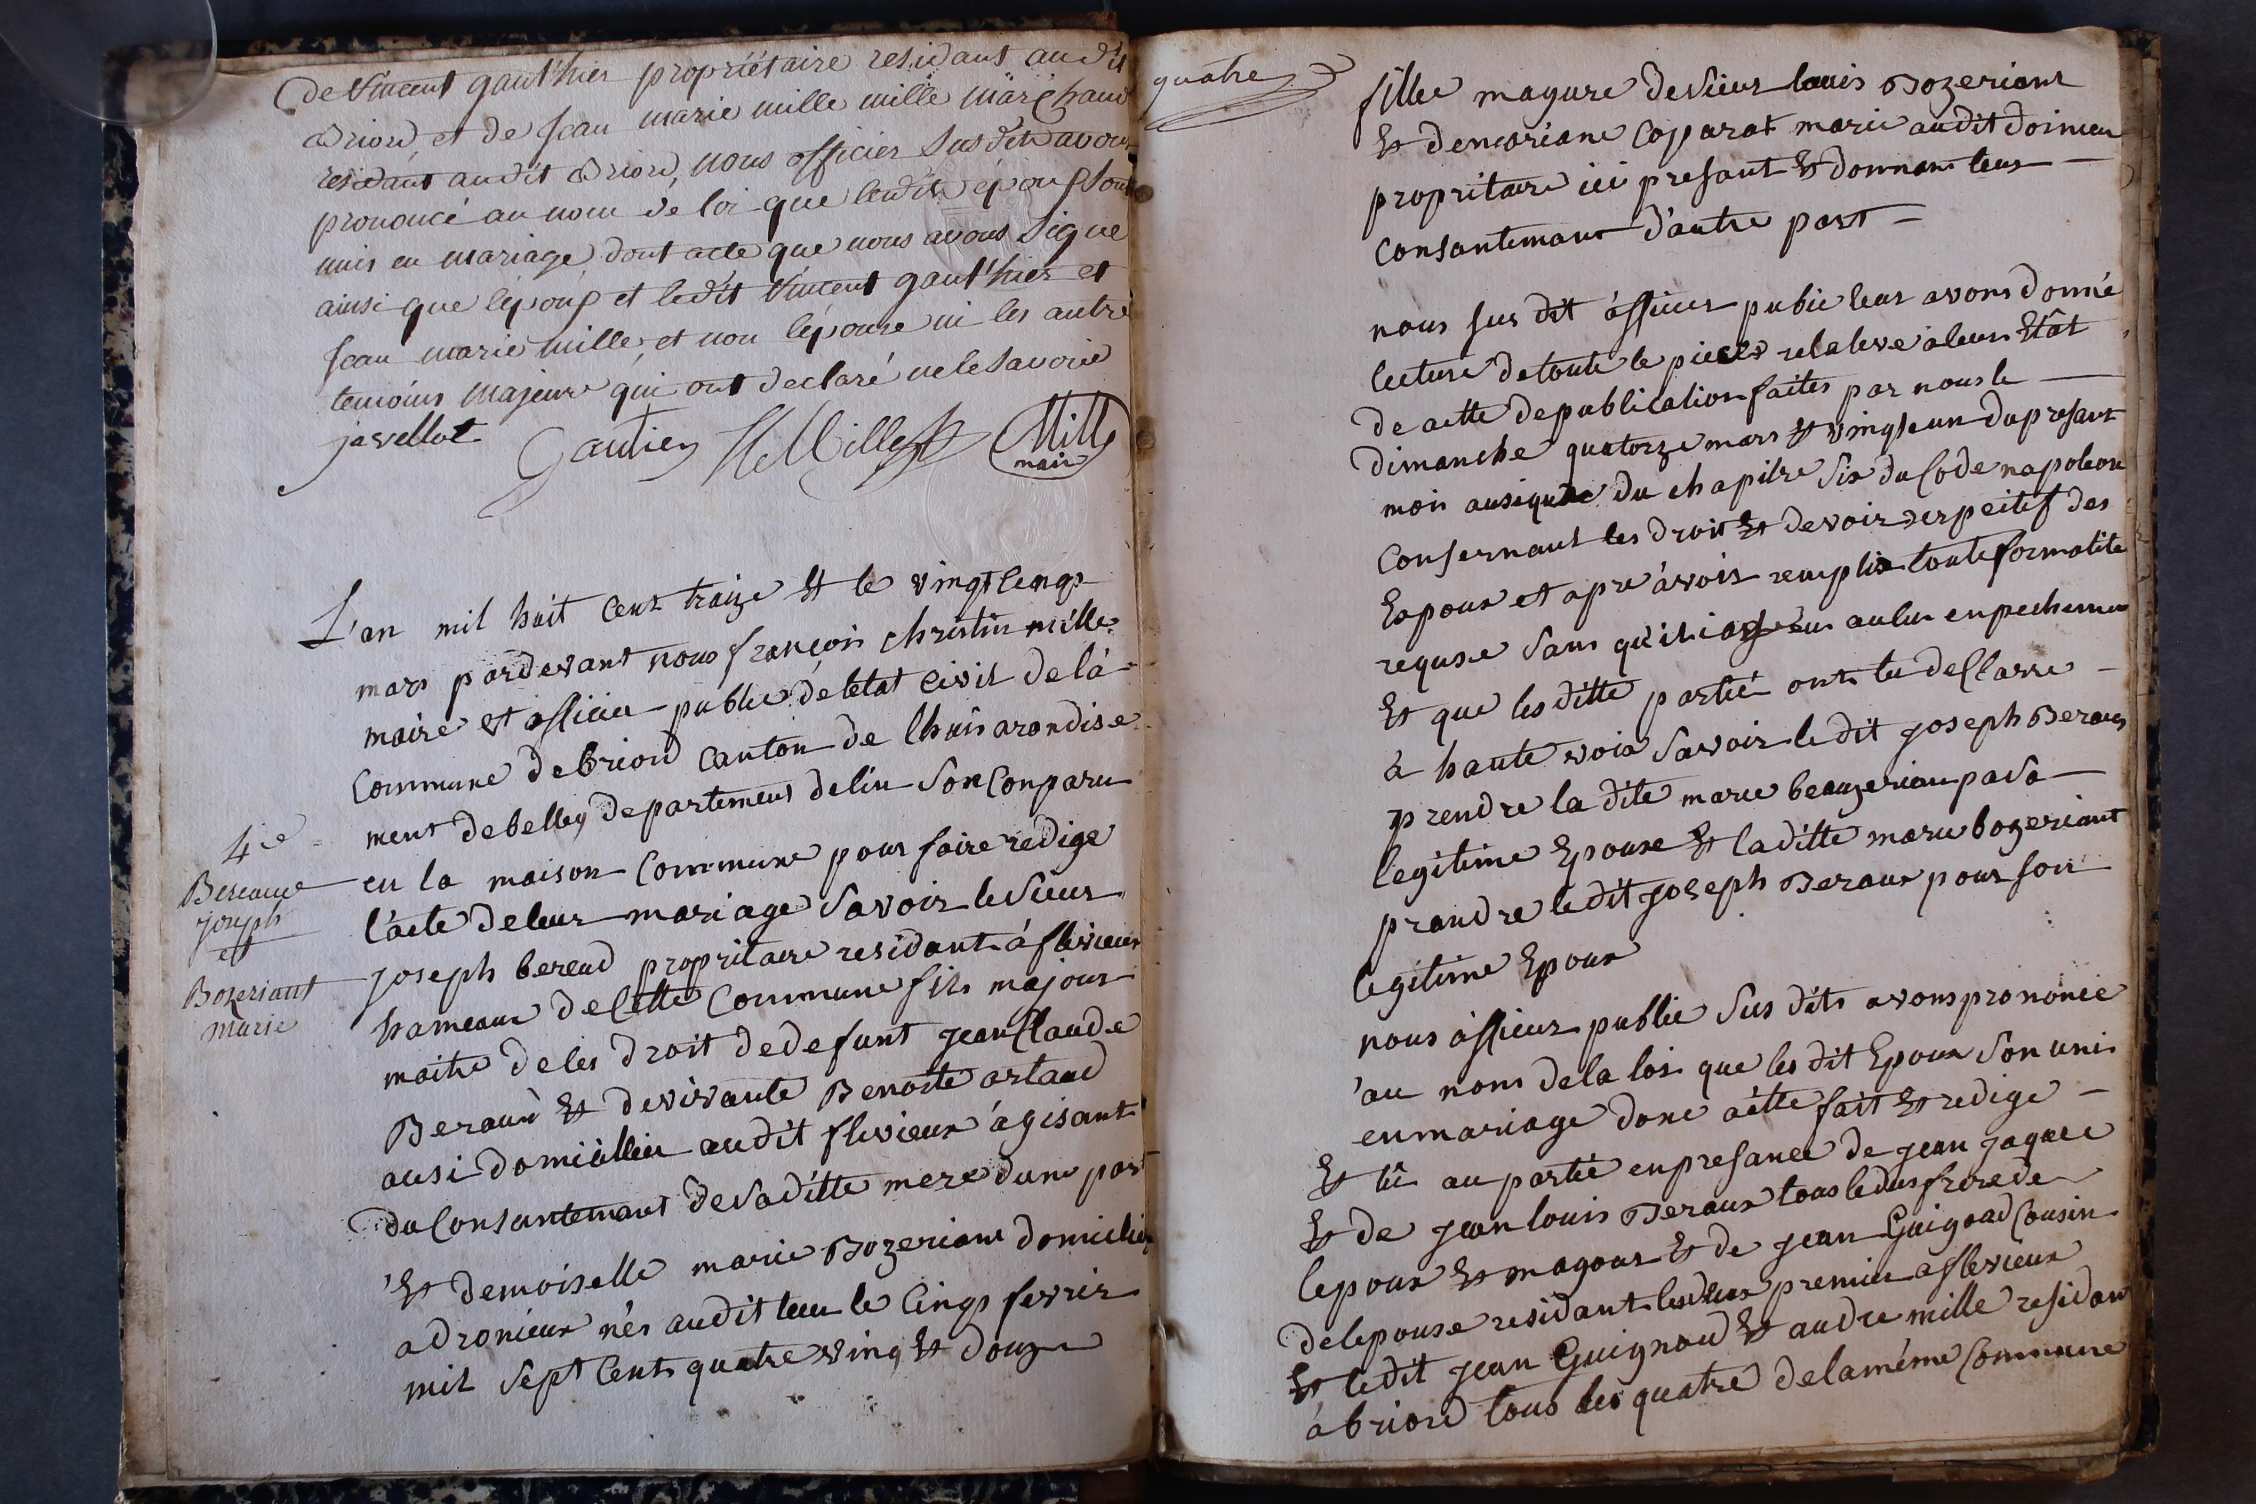 de Vincent gauthier propriétaire residant audit
Briord, et de Jean marie mille mille marchand
residant audit Briord, nous officier susdit avons
prononcé au nom de loi que lesdits époux sont
unis en mariage dont acte que nous avons signé
ainsi que lépoux et ledit Vincent gauthier et
Jean marie mille, et non lépouse ni les autre
temoins majeurs qui ont declaré ne le savoir
javellot Gautier Mille Mille
maire
L'an mil huit cent traize Et le vingt cinqs
mars pardevant nous françois christin mille
maire et officier public de létat civil de la
Commune de briord canton de lhuis arondise
ment de belley departement de lin son Conparu
en la maison Commune pour faire redige
l'acte de leur mariage Savoir le Sieur
joseph beraud propritaire residant á flevieux
hameaux de Cette Commune fils majour
maitre de ses droit de defunt jean Claude
Beraud Et de vivante Benoite artaud
ausi domicillier audit flevieux ágisant
du Consantemant de sa ditte mere dune part
Et demoiselle marie Bozeriant domicilié
a dronieux nés audit lieu le Cinqs fevrir
mil sept Cents quatre ving Et douze
4e
Beraud
joseph
et
Bozeriant
marie
quatre
fille mayure de Sieur louis Bozeriant
Et de mariane Coparat marié audit doinieu
propritaire ici presant Et donnant leur
Consantemant d'autre part
nous sus dit officier pubic leur avons donné
lecture de toute le pieces relative a leur Etât
de actte de publication faites par nous le
dimanche quatorze mars Et vingt eun du presant
mois ausi que du chapitre Six du Code napoleon
Consernant les droit Et devoir respeitif des
Epoux et apre ávoir remplis toute formalite
requse Sans qu'il i eu aucun enpechemen
Et que les ditte partié ont tu declarre
á haute voix Savoir le dit joseph Beraux
prendre la dite marie beauzerian pa sa
legitime Epouse Et la ditte marie bozeriant
prandre le dit joseph Beraux pour son
legitime Epoux
nous ófficier public Sus dits avons prononcé
au nom de la loi que les dit Epoux Son unis
en mariage donc aétte fait Et redige
Et lû au partié en presance de jean jaques
Et de jean louis Beraux tous le dus frere de
lepoux Et mayour Et de jean Guignad Cousin
de lepouse residant les deux premier a flevieux
Et le dit jean Guignard Et andre mille residan
á briord tous les quatre de la méme Commune